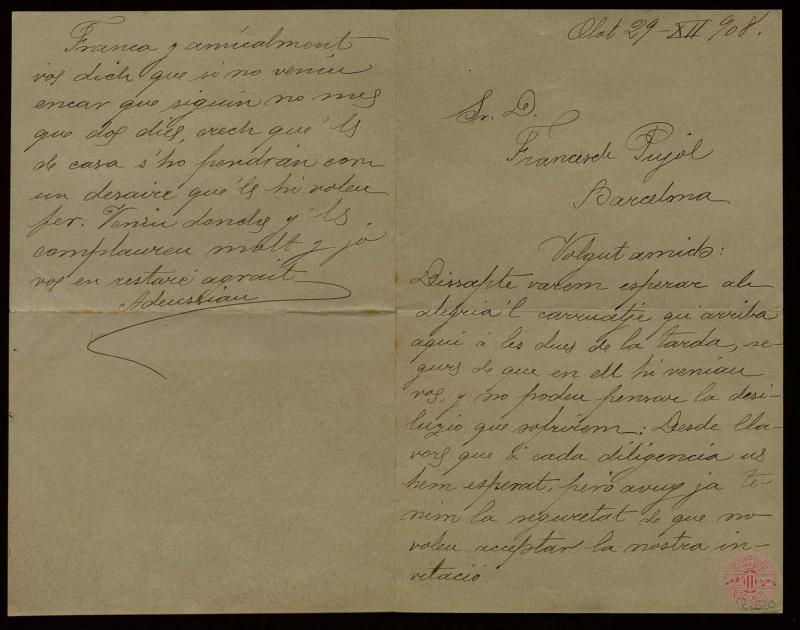 Olot 29-XII 908.
Sr. D.
Francesch Pujól
Barcelona
Volgut amich:
Dissapte varem esperar ab
alegria 'l carruatje qu'arriba
aquí á les dues de la tarda, se-
gurs de que en ell hi veniau
vos, y no podeu pensar la desi-
luzió que sofrirem; Desde lla-
vors que á cada diligencia us
hem esperat, peró avuy ja te-
nim la seguretat de que no
voleu acceptar la nostra in-
vitació.
Franca y amicalment
vos dich que si no veniu
encar que siguin no mes
que dos dies, crech que 'ls
de casa s'ho pendrán com
un desaire que 'ls hi voleu
fer. Veniu donchs y 'ls
complaureu molt y jo
vos en restaré agrait
Adeusiau
R2520